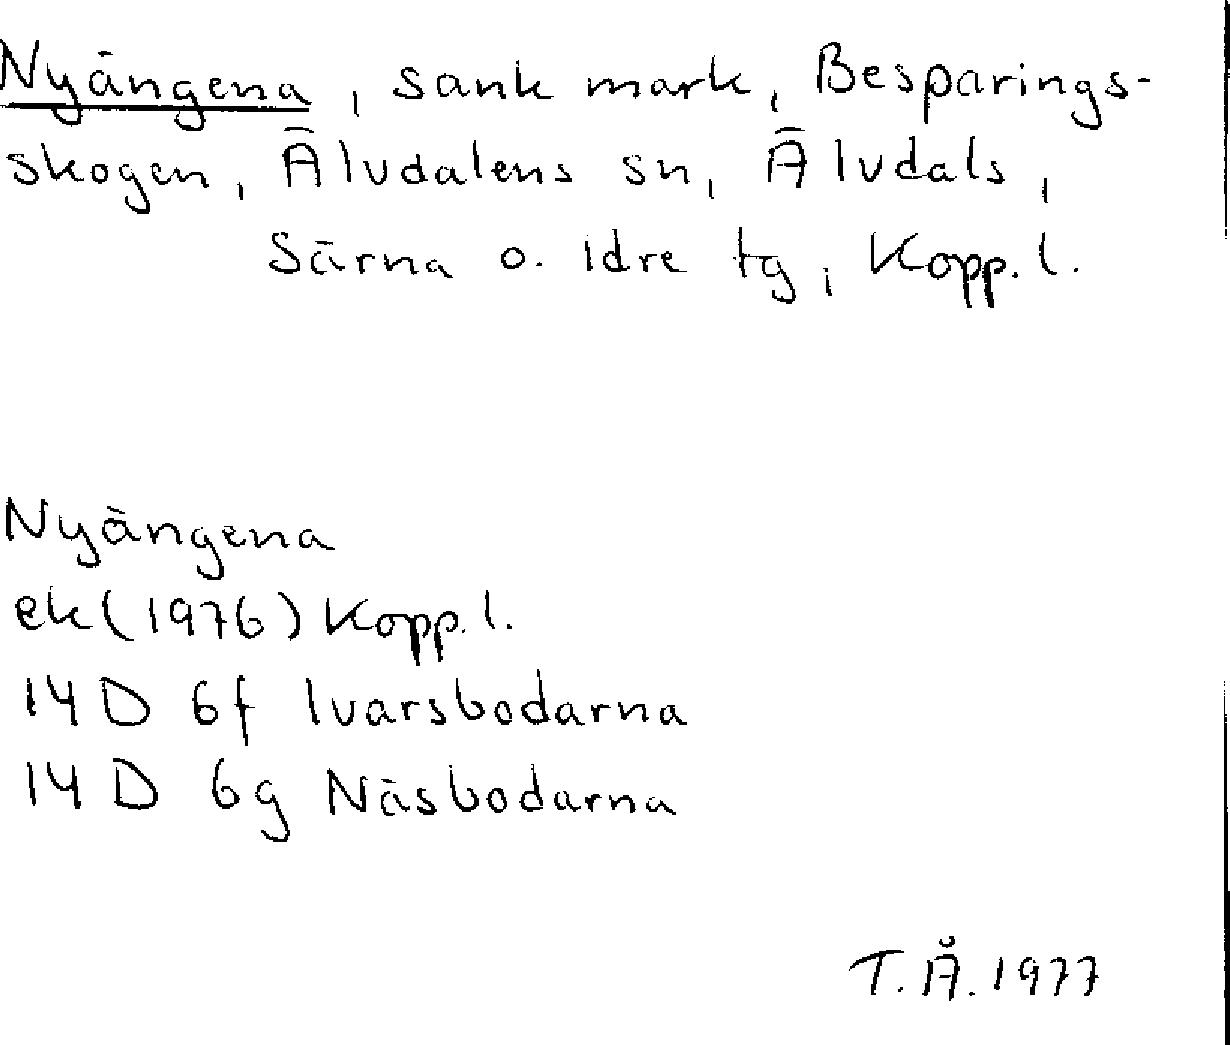 Nyängena, sank mark, Besparings-
skogen, Älvdalens sn, Älvdals,
Särna o. Idre tg, Kopp. l.
Nyängena
ek (1976) Kopp. l.
14 D 6f Ivarsbodarna
14 D 6g Näsbodarna
T. Å. 1977